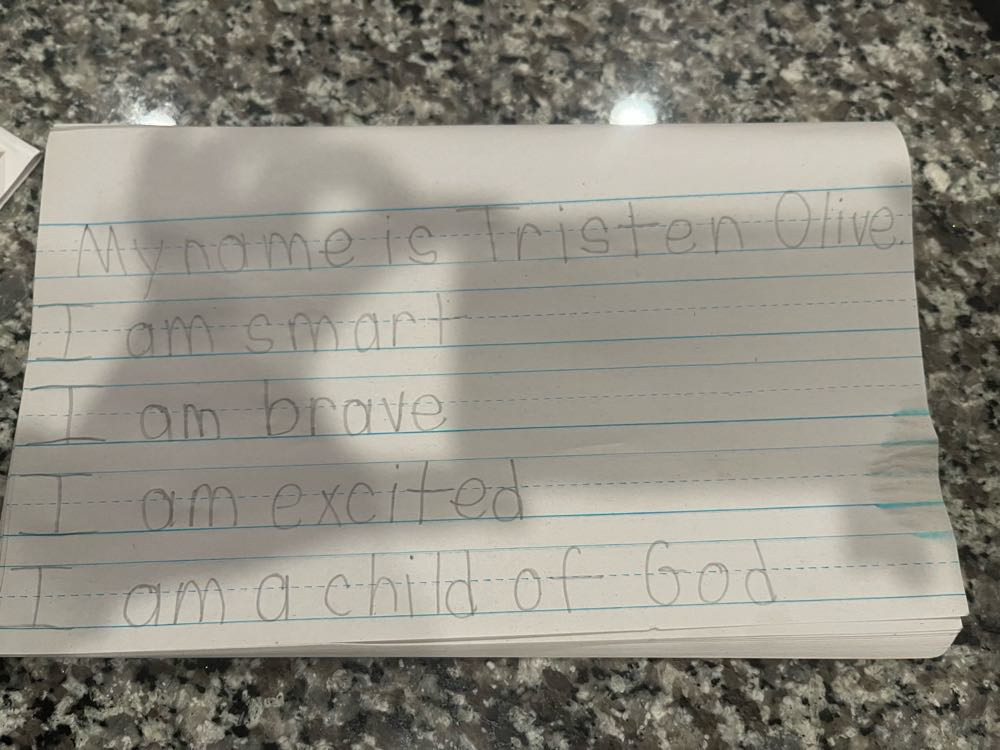 My name is Tristen Olive.
I am smart
I am brave
I am excited
I am a child of God